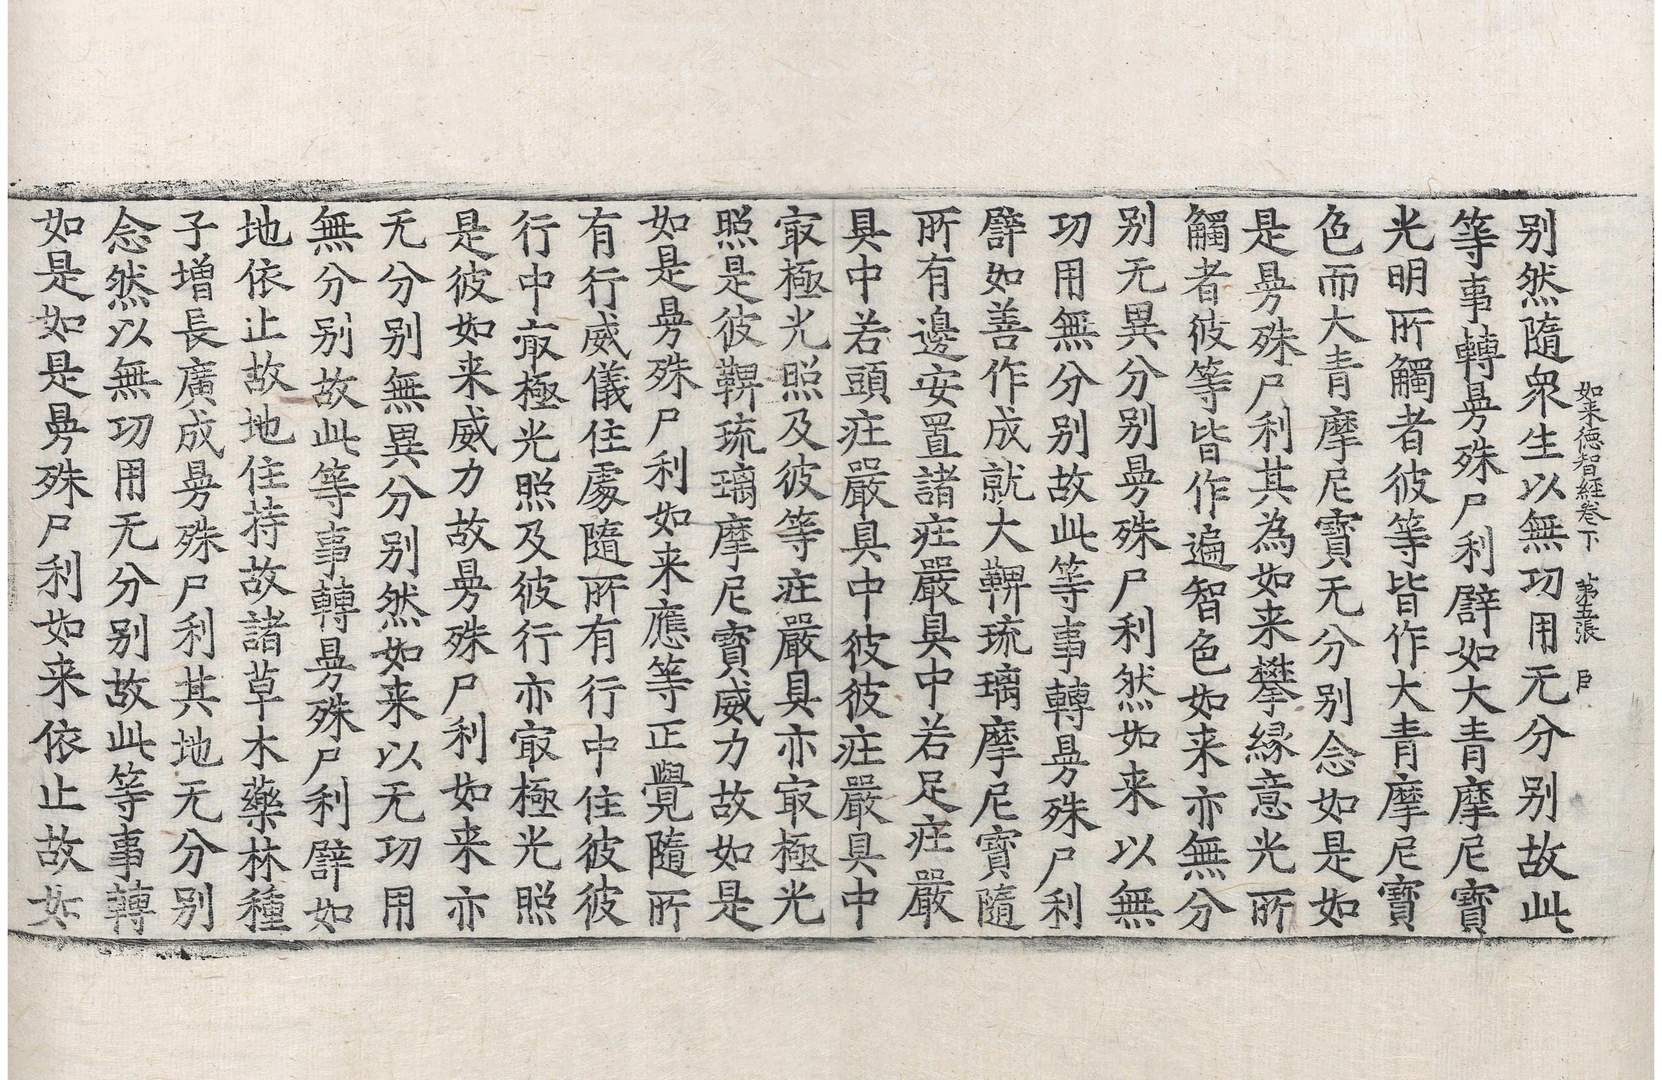 如来德智經卷下 第五張 臣
别然隨衆生以無功用无分别故此
等事轉曼殊尸利譬如大青摩尼寶
光明所觸者彼等皆作大青摩尼寶
色而大青摩尼寶无分别念如是如
是曼殊尸利其為如来攀緣意光所
觸者彼等皆作遍智色如来亦無分
别无異分别曼殊尸利然如来以無
功用無分别故此等事轉曼殊尸利
譬如善作成就大鞞琉璃摩尼寶隨
所有邊安置諸庄嚴具中若足庄嚴
具中若頭庄嚴具中彼彼庄嚴具中
㝡極光照及彼等庄嚴具亦㝡極光
照是彼鞞琉璃摩尼寶威力故如是
如是曼殊尸利如来應等正覺隨所
有行威儀住處隨所有行中住彼彼
行中㝡極光照及彼行亦㝡極光照
是彼如来威力故曼殊尸利如来亦
无分别無異分别然如来以无功用
無分别故此等事轉曼殊尸利譬如
地依止故地住持故諸草木藥林種
子增長廣成曼殊尸利其地无分别
念然以無功用无分别故此等事轉
如是如是曼殊尸利如来依止故如